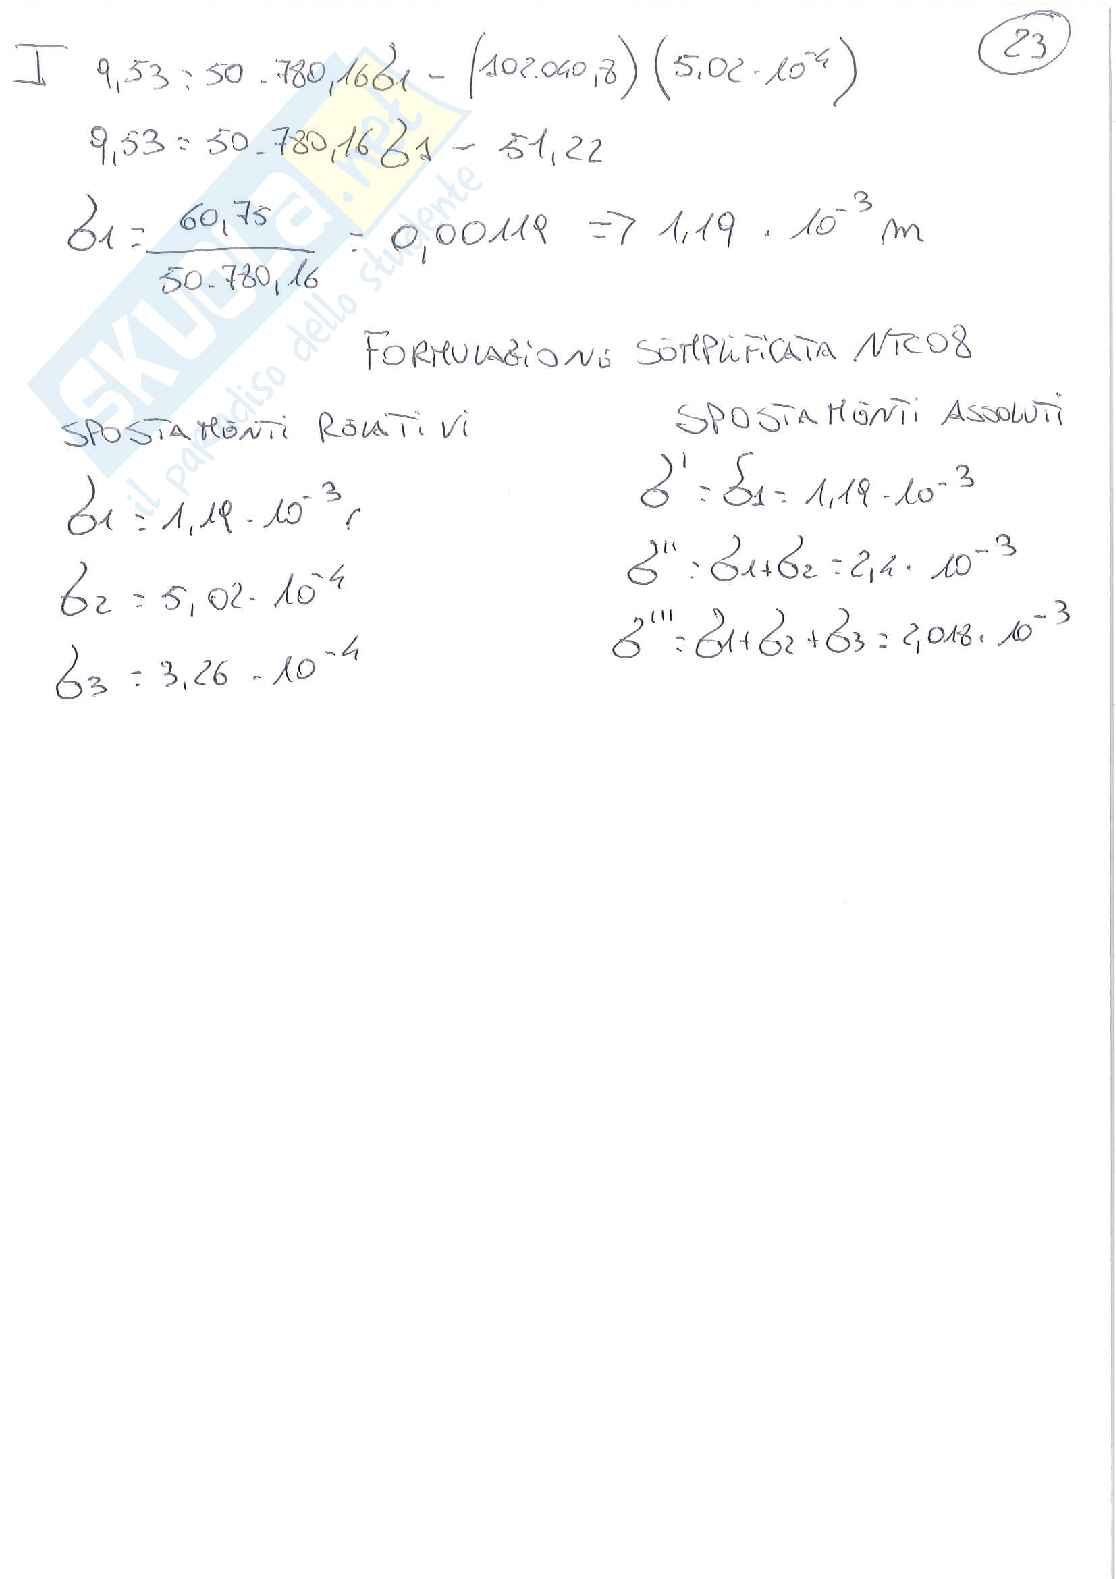 23
I 9,53 = 50.780,16 δ1 - (102.040,8) (5,02 · 10⁻⁴)
9,53 = 50.780,16 δ1 - 51,22
δ1 = 60,75 / 50.780,16 = 0,00119 => 1,19 · 10⁻³ m
FORMULAZIONE SEMPLIFICATA NTC08
SPOSTAMENTI RELATIVI
δ1 = 1,19 · 10⁻³
δ2 = 5,02 · 10⁻⁴
δ3 = 3,26 · 10⁻⁴
SPOSTAMENTI ASSOLUTI
δ' = δ1 = 1,19 · 10⁻³
δ'' = δ1 + δ2 = 2,4 · 10⁻³
δ''' = δ1 + δ2 + δ3 = 2,018 · 10⁻³
SKUOLA.net
il paradiso dello studente